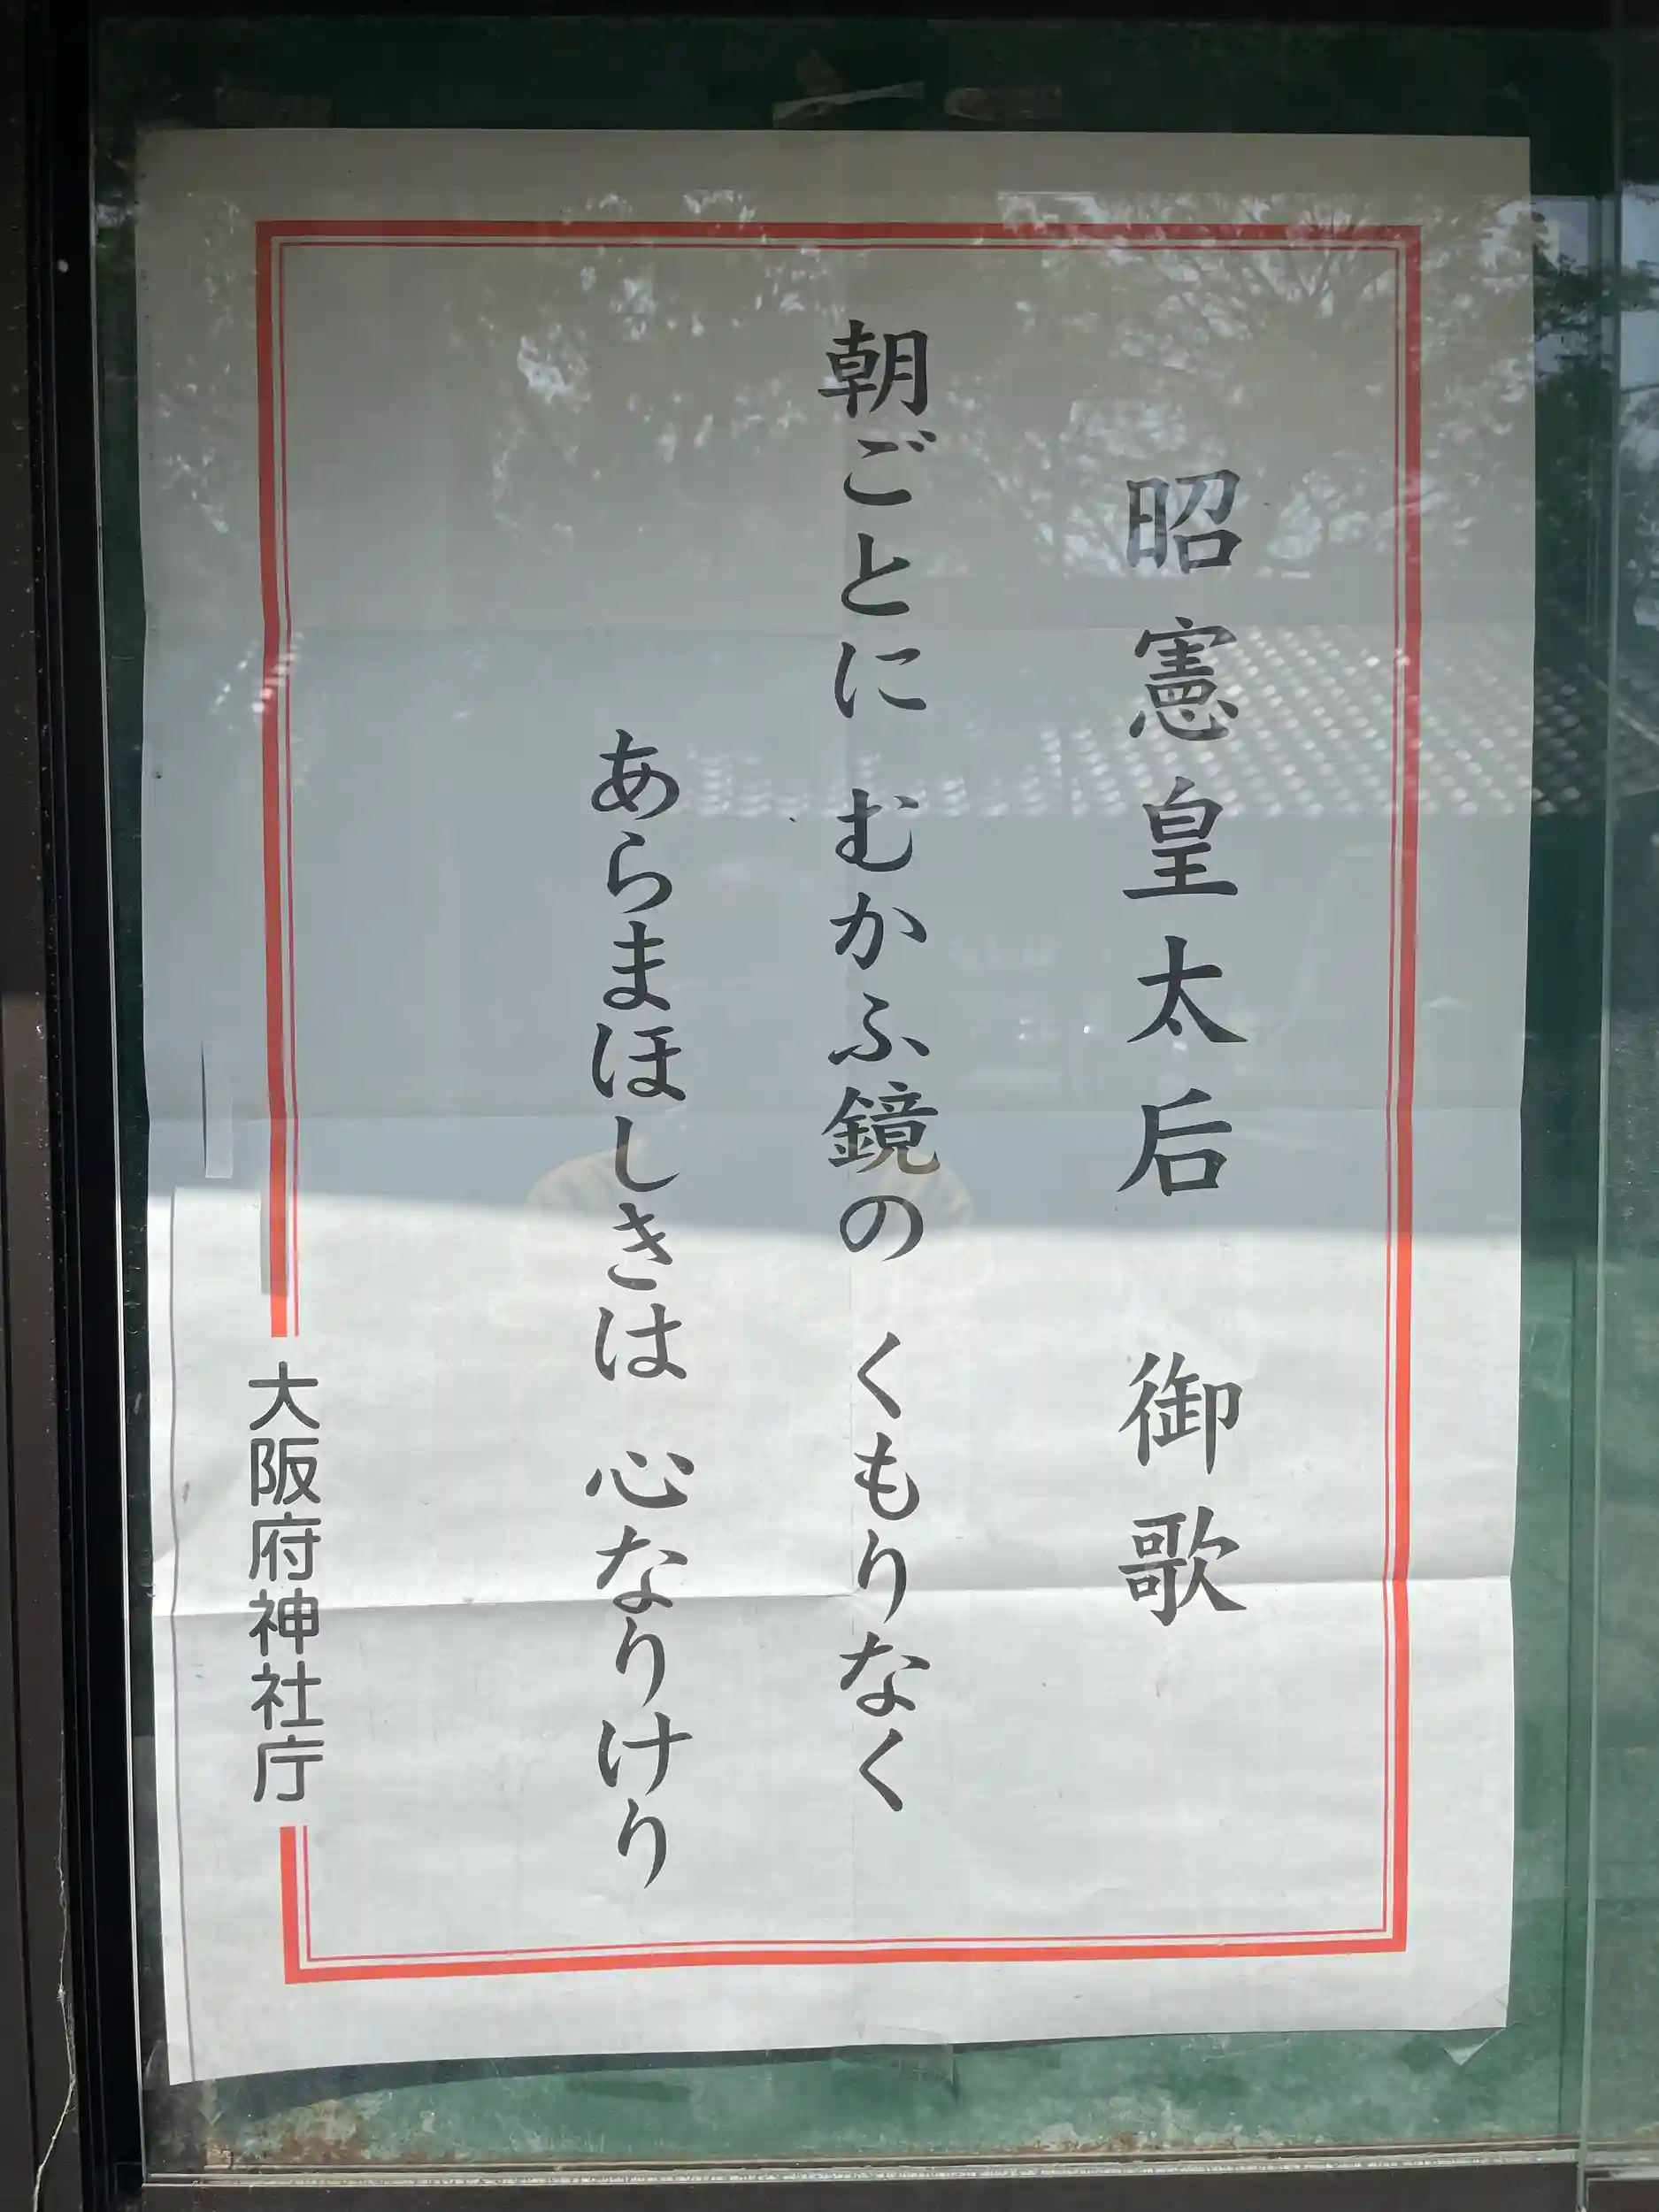 昭憲皇太后　御歌
朝ごとに　むかふ鏡の　くもりなく
あらまほしきは　心なりけり
大阪府神社庁